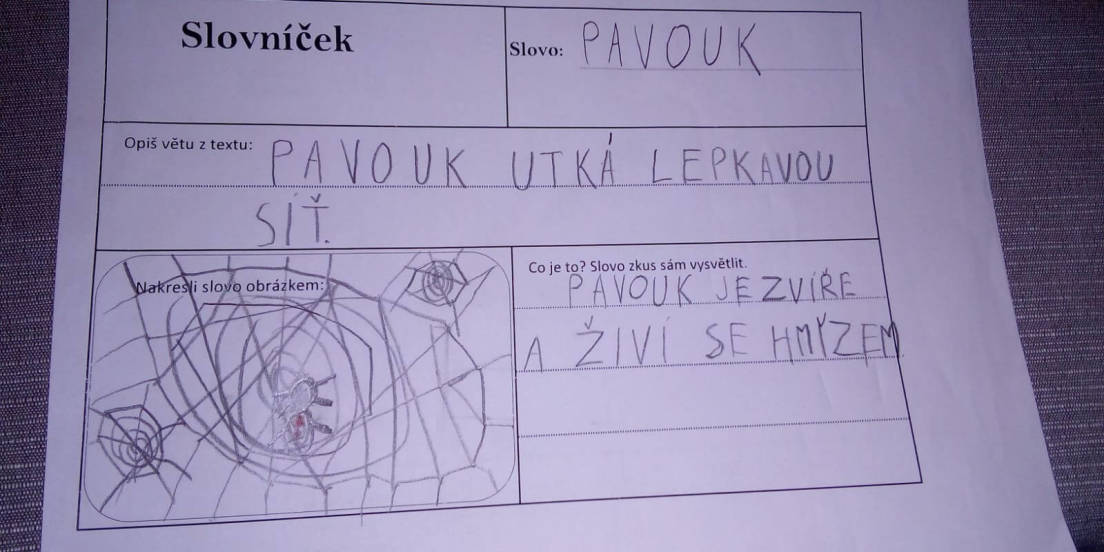 Slovníček
Slovo: PAVOUK
Opiš větu z textu: PAVOUK UTKÁ LEPKAVOU
SÍŤ.
Nakresli slovo obrázkem:
Co je to? Slovo zkus sám vysvětlit.
PAVOUK JE ZVÍŘE
A ŽIVÍ SE HMÝZEM